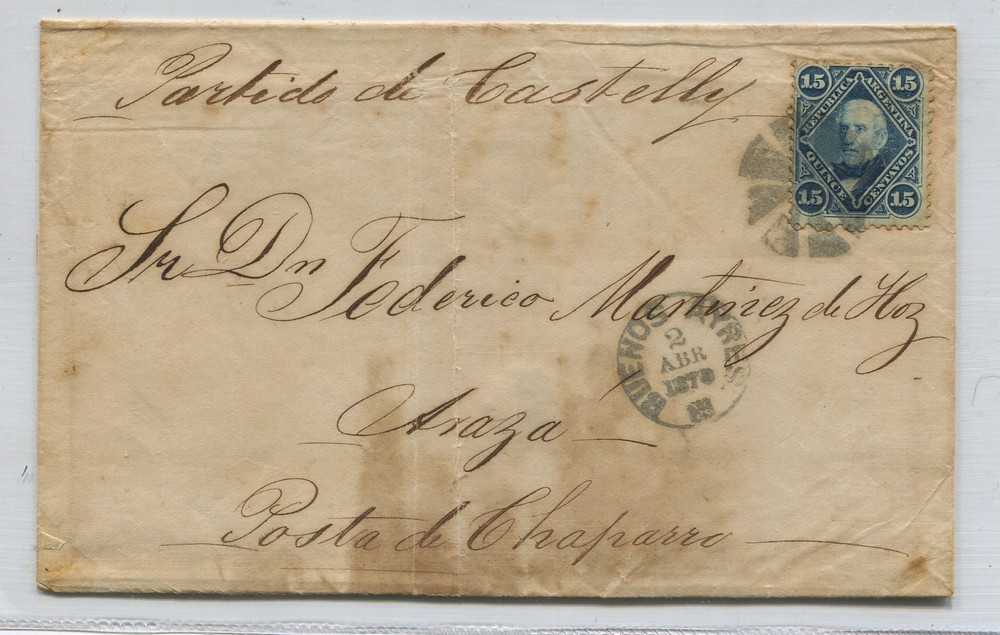 Partido de Castelly
15 15
REPUBLICA ARGENTINA
QUINCE CENTAVOS
15 15
Sr Dn Federico Martinez de Hoz
BUENOS AYRES
2
ABR
1878
Araza
Posta de Chaparro